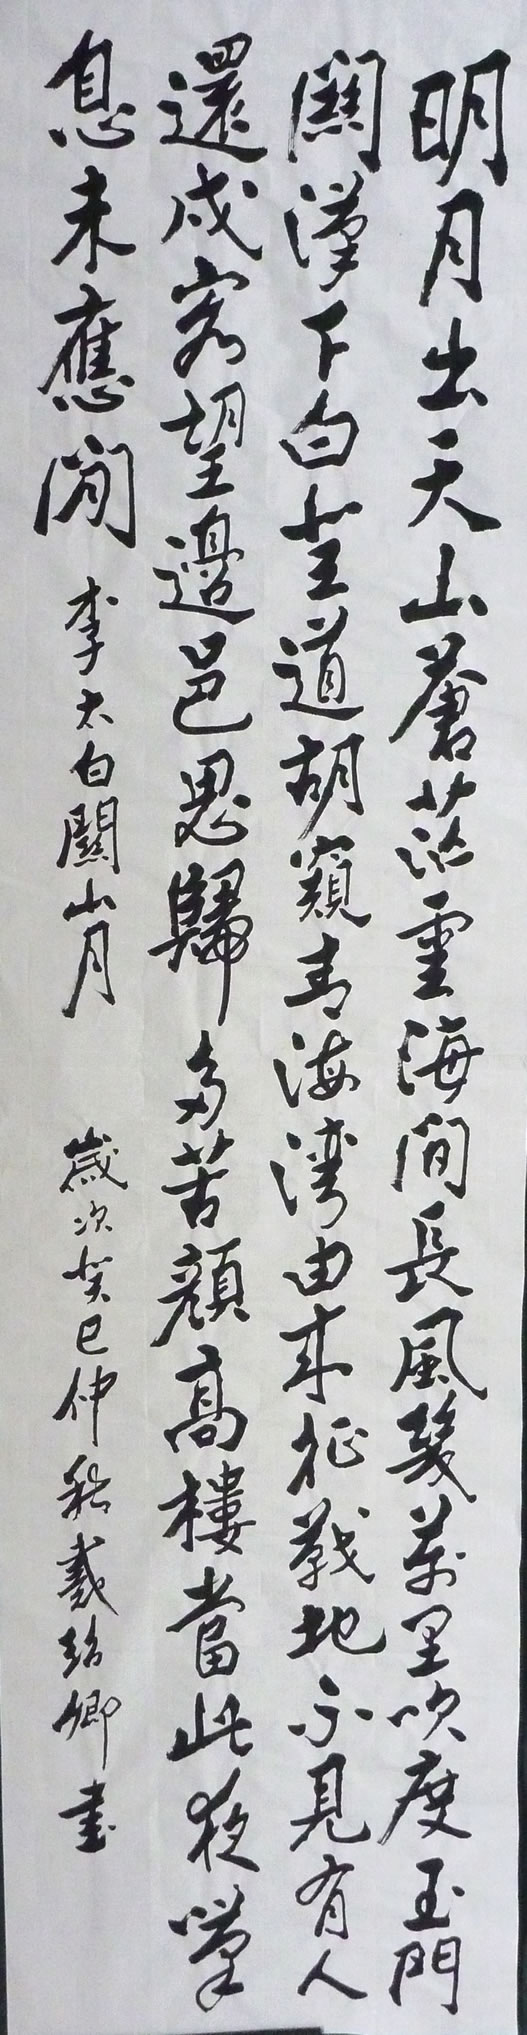 明月出天山蒼茫雲海間長風幾萬里吹度玉門
關漢下白登道胡窺青海灣由來征戰地不見有人
還戍客望邊邑思歸多苦顏高樓當此夜嘆
息未應閒 李太白關山月 歲次癸巳仲秋戴紹卿書